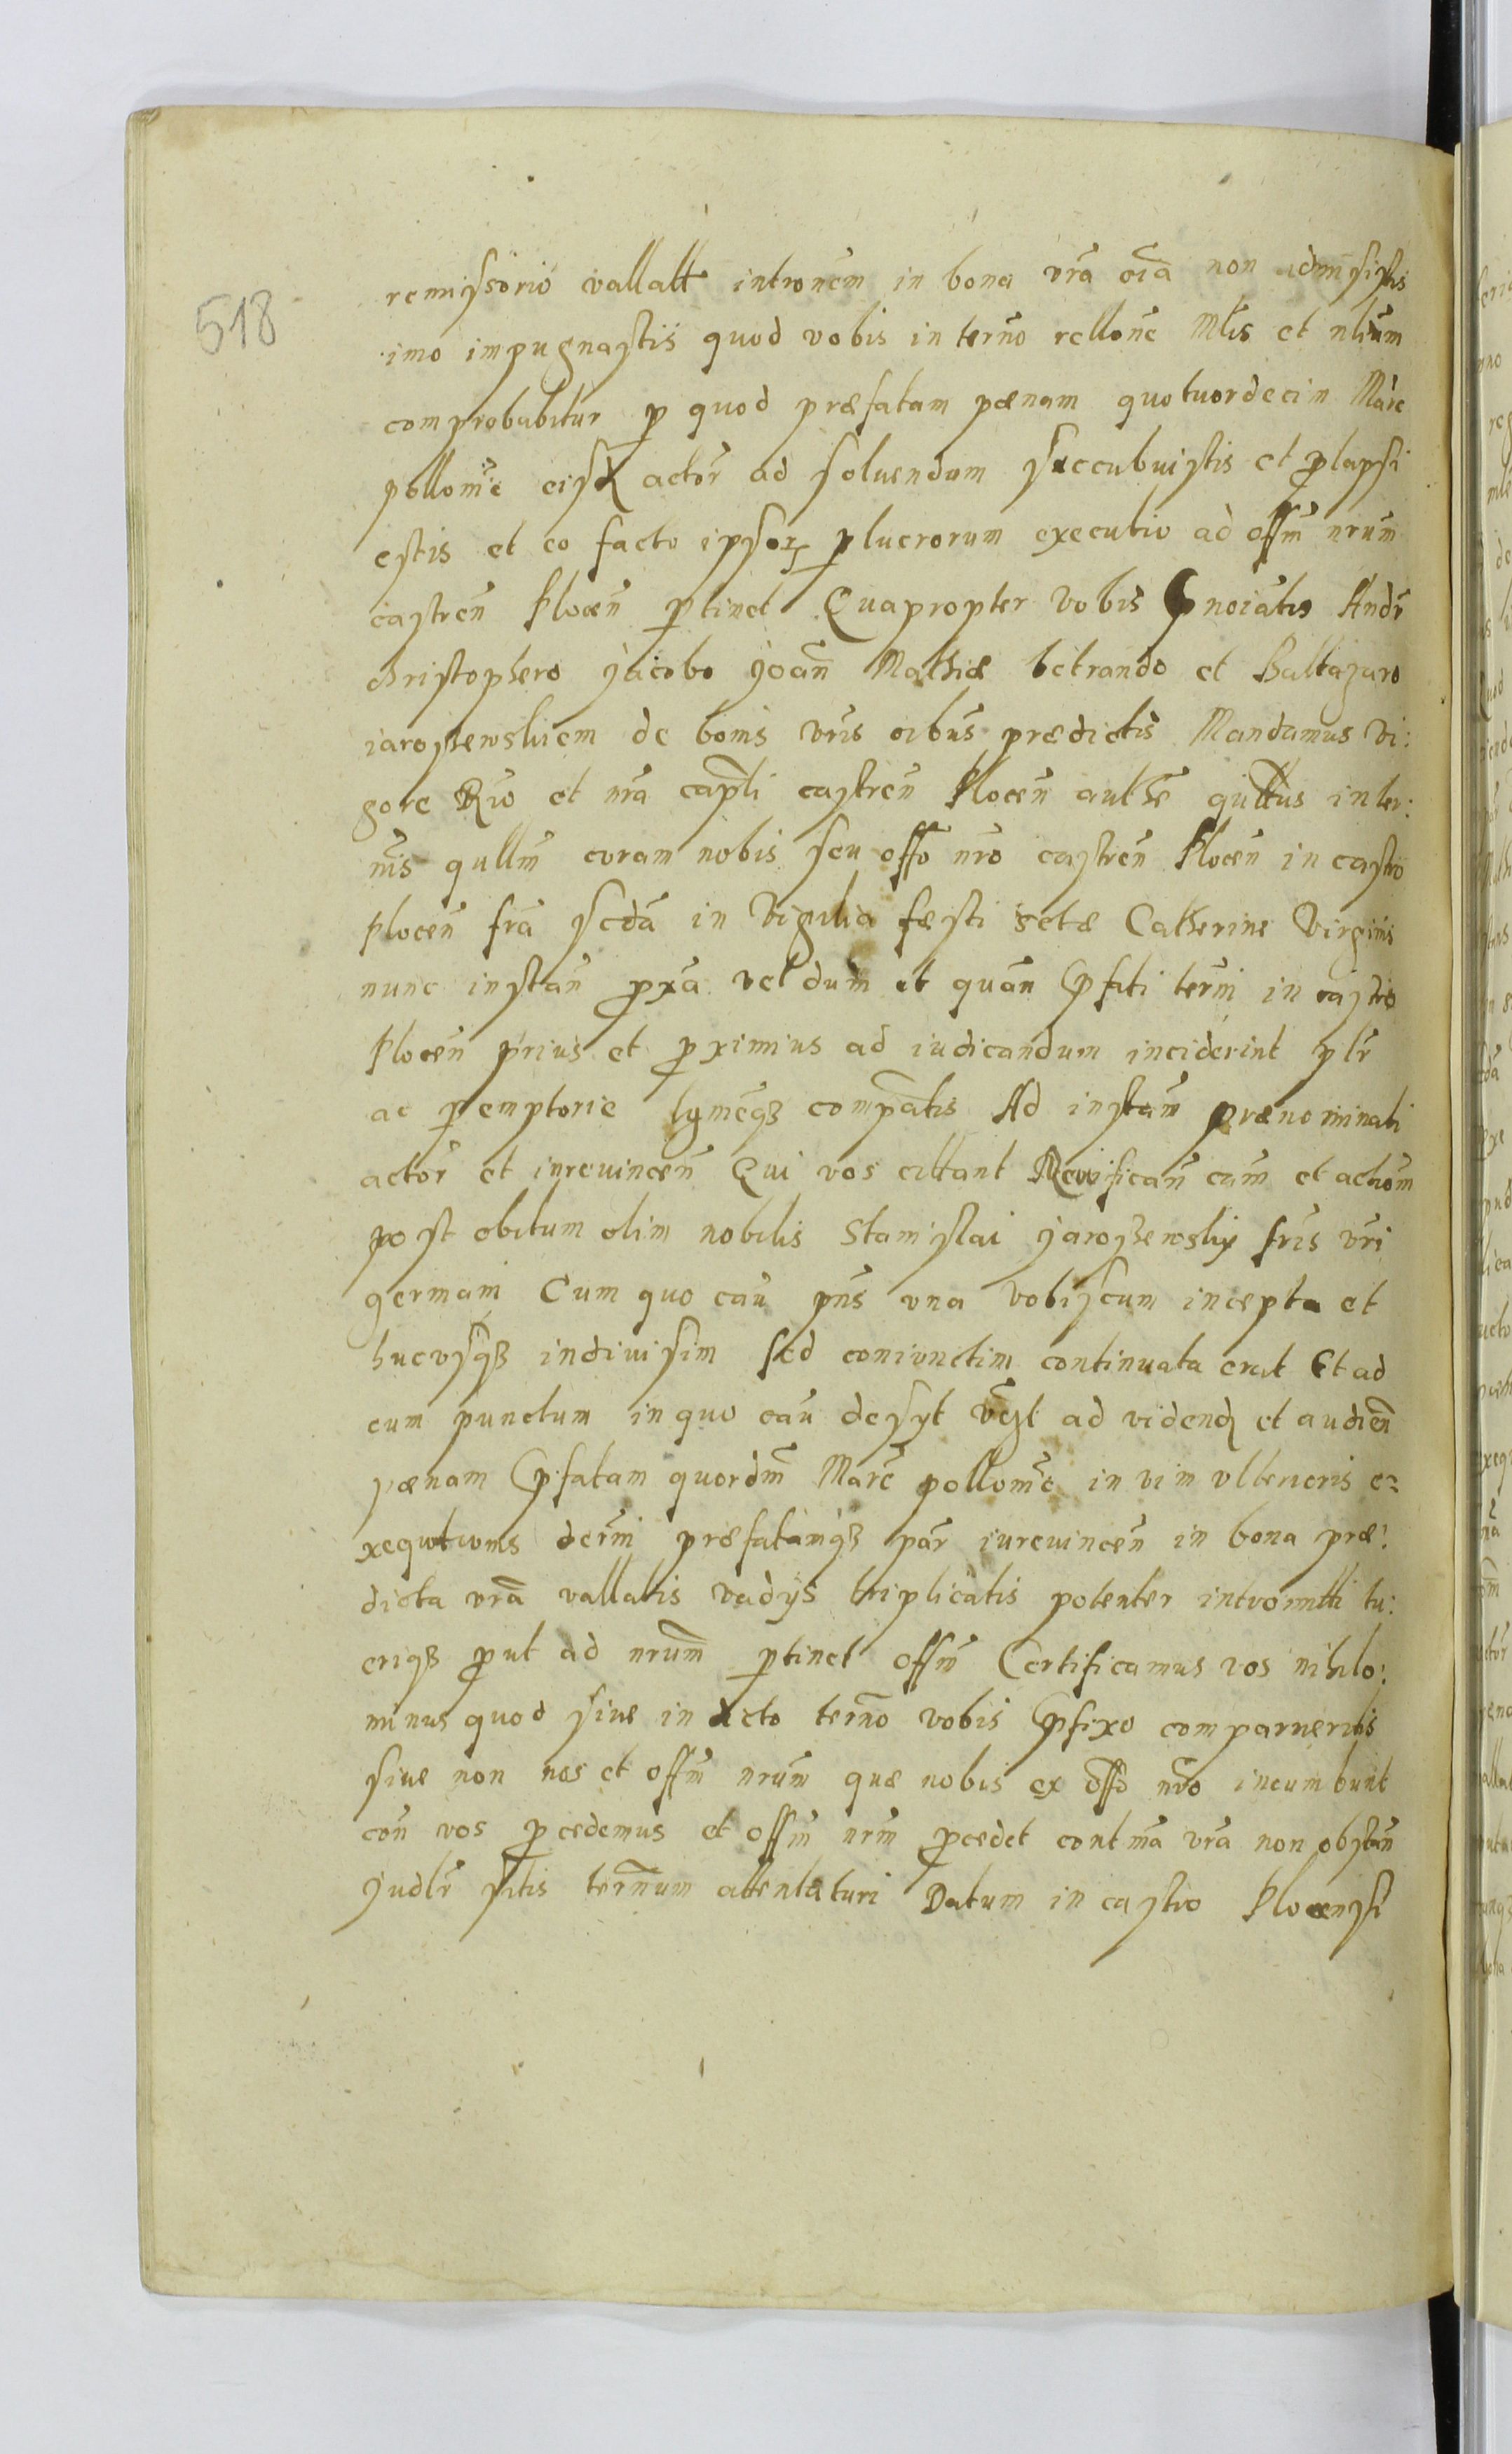 518
remissorio vallatt intronem in bona vra oia non admisistis
imo impugnastis quod vobis in termo rellone Mlis et nlium
comprobabitur p quod præfatam pænam quotuordecim Marc
pollom̃c eisd actor ad soluendum succubuistis et plapsi
estis et eo facto ipsor plucrorum executio ad offm nrum
castren Plocen ptinet Quapropter vobis pnoiatis Andr
christophero Jacobo Joan Mathiæ betrando et Baltazaro
iaroszewskiem de bonis vris oibus prædictis Mandamus vi:
gore Rio et nra capli castren Plocen authe quttus in ter:
nis qullm coram nobis seu offo nro castren Plocen in castro
Plocen fra scda in vigilia fæsti sctæ Catherine Virginis
nunc instan pxa vel dum et quan pfati termi in castro
Plocen prius et pximius ad iudicandum inciderint plr
ac pemptorie lgmeqз compatis Ad instam prænominati
actor et inreuincen Qui vos cittant Reuificam cam et actiom
post obitum olim nobilis Stanislai Jaroszewsky fris vri
germani Cum quo cau pns vna vobiscum incepta et
hucvsqз indiuisim sed coniunctim continuata erat Et ad
eum punctum in quo cau desyt vest ad videnд et audien
pænam pfatam quordm Marc pollom̃c in vim vlterioris e=
xequtionis dermi præfatamqз par iureuincen in bona præ:
dicta vra vallatis vadys triplicatis potenter intromitti tu:
eriqз put ad nrum ptinet offm Certificamus vos nihilo:
minus quod siue in dicto termo vobis pfixo comparueritis
siue non nos et offm nrum quæ nobis ex offo nro incumbunt
con vos pcedemus et offm nrm pcedet contma vra non obstan
Judlr sitis ternum attentaturi Datum in castro Plocensi